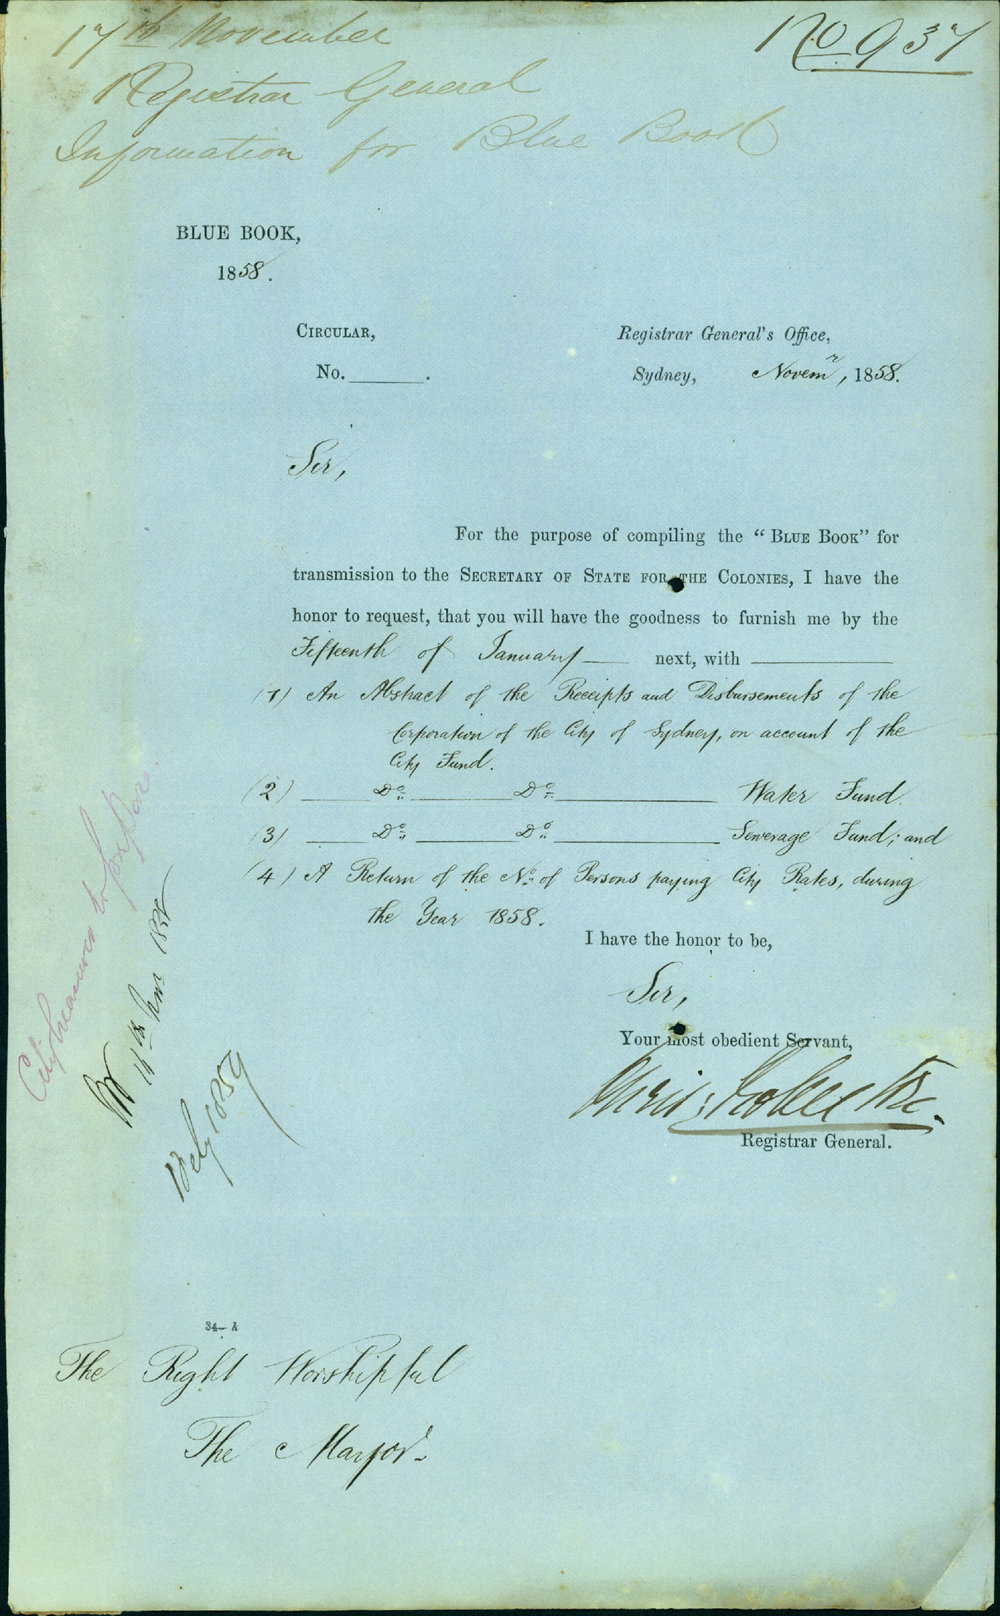 17th November
No 937
Registrar General
Information for Blue Book
BLUE BOOK,
1858.
CIRCULAR,
No. ______.
Registrar General's Office,
Sydney, Novemr, 1858.
Sir,
For the purpose of compiling the "BLUE BOOK" for
transmission to the SECRETARY OF STATE FOR THE COLONIES, I have the
honor to request, that you will have the goodness to furnish me by the
Fifteenth of January next, with
(1) An Abstract of the Receipts and Disbursements of the
Corporation of the City of Sydney, on account of the
City Fund.
(2) Do. Do. Water Fund.
(3) Do. Do. Sewerage Fund; and
(4) A Return of the No. of Persons paying City Rates, during
the Year 1858.
I have the honor to be,
Sir,
Your most obedient Servant,
Registrar General.
City Treasurer to prepare.
1859
34—A
The Right Worshipful
The Mayor.